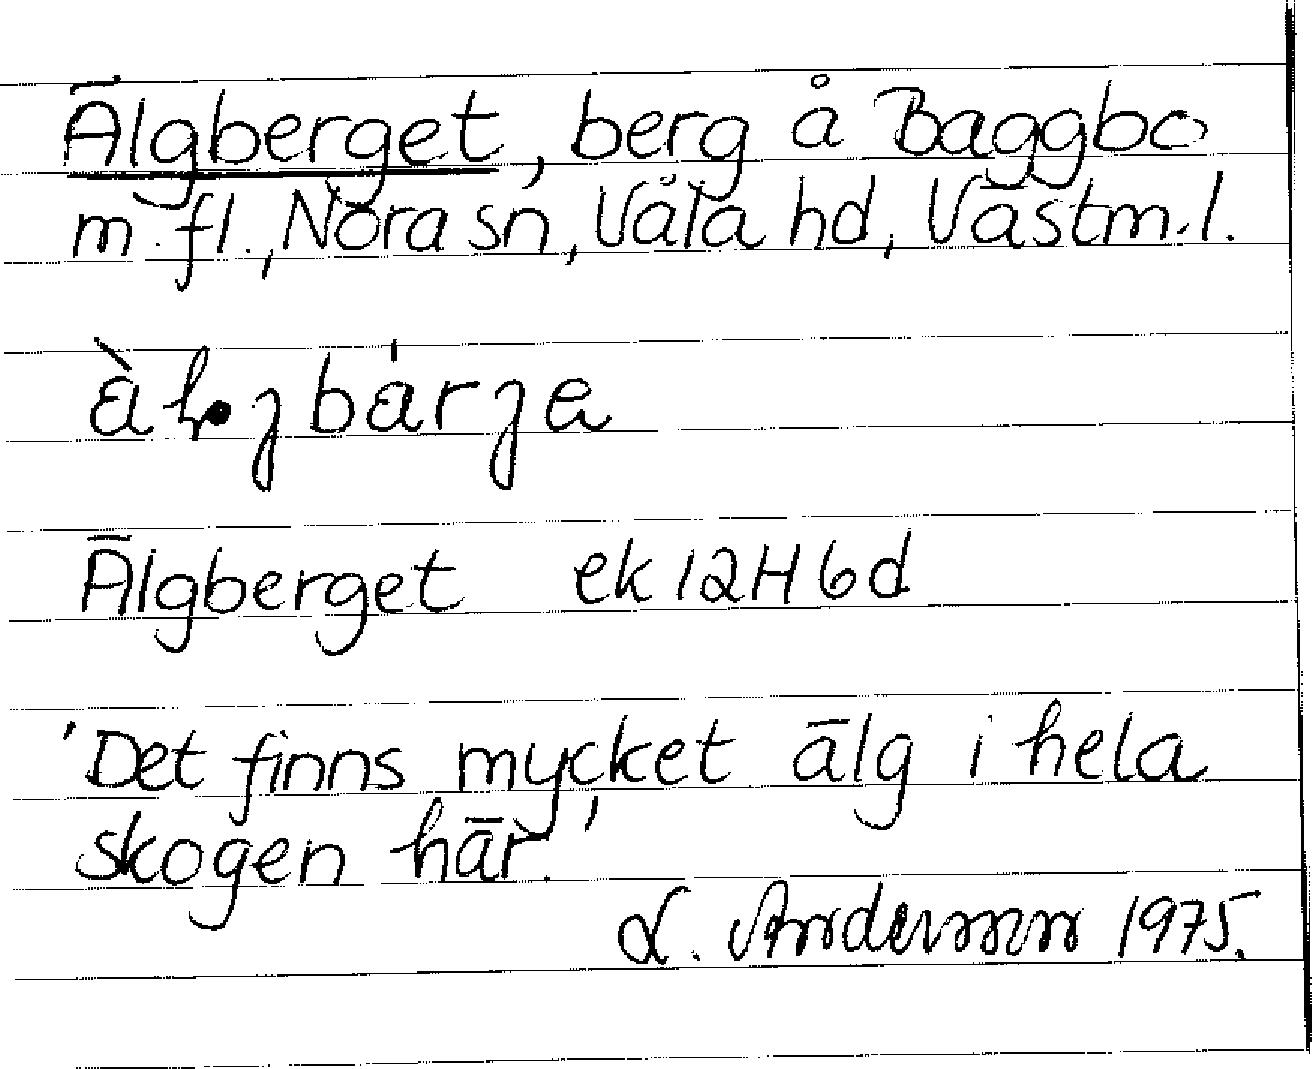 Älgberget, berg å Baggbo
m.fl., Nora sn, Våla hd, Västm.l.
Älgberget ek 12H6d
'Det finns mycket älg i hela
skogen här.'
L. Andersson 1975.